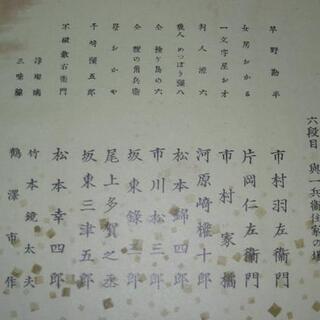 六段目　與一兵衛住家の場
早野勘平　市村羽左衛門
女房おかる　片岡仁左衛門
一文字屋おオ　市村家橘
判人源六　河原崎權十郎
職人めっぽう彌八　松本錦四郎
仝種ヶ島の六　市川松三郎
仝狸の角兵衛　坂東録三郎
母おかや　尾上多賀之丞
千崎彌五郎　坂東三津五郎
不破數右衛門　松本幸四郎
淨瑠璃　竹本鏡太夫
三味線　鶴澤市作